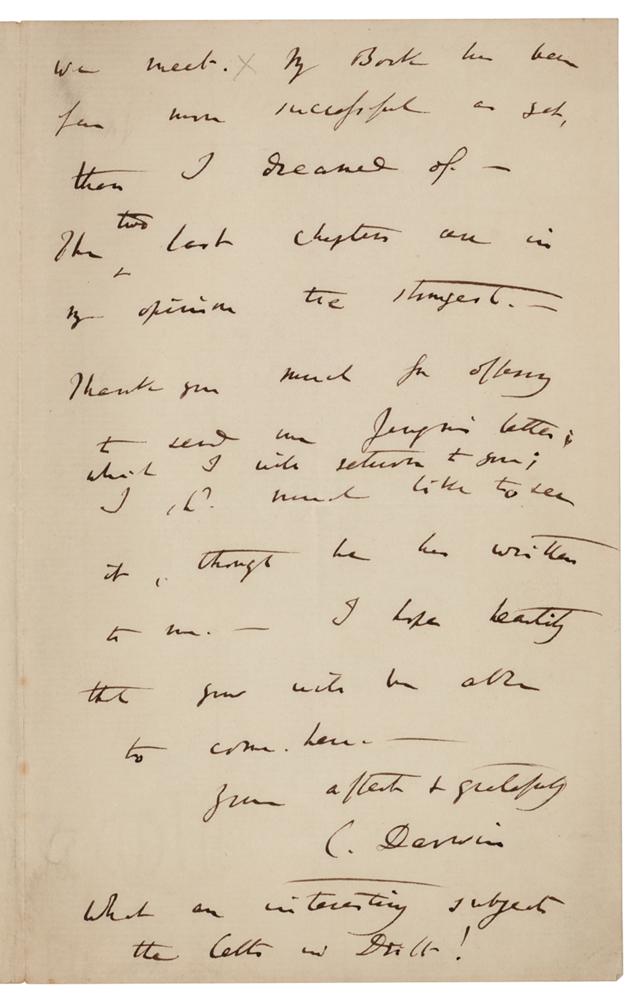 we meet. × My Book has been
far more successful as yet,
than I dreamed of. —
The two last chapters are in
my opinion the strongest. —
Thank you much for offering
to send me letter;
which I will return to you;
I shd. much like to see
it, though he has written
to me. — I hope heartily
that you will be able
to come here. —
Yours affect & gratefully
C. Darwin
What an interesting subject
the Celts in Drift!